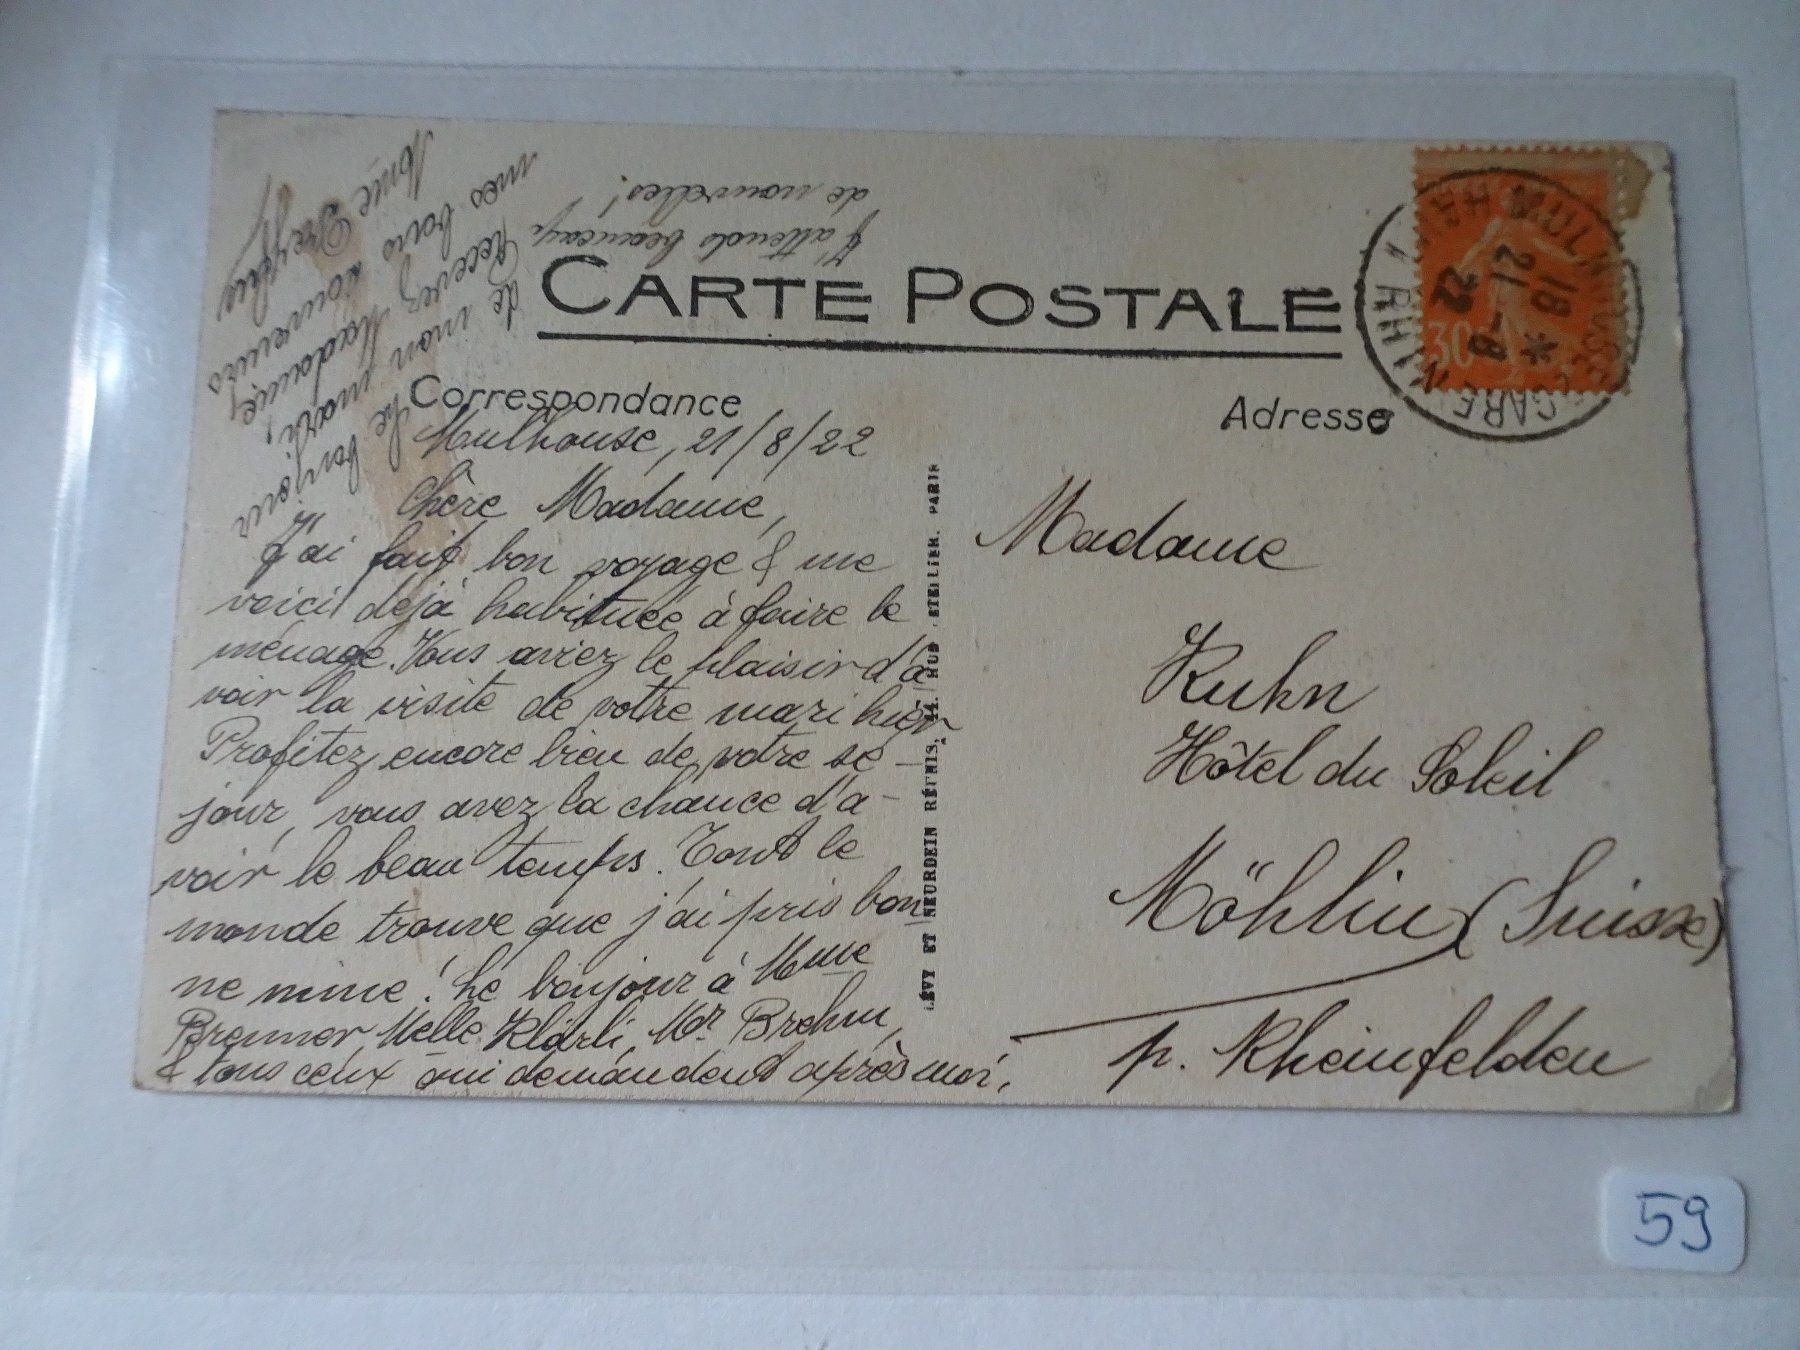 J'attends beaucoup
de nouvelles!
CARTE POSTALE
Correspondance
Adresse
Mulhouse, 21/8/22
Chère Madame,
J'ai fait bon voyage & me
voici déjà habituée à faire le
ménage. Vous aviez le plaisir d'a
voir la visite de votre mari hièr.
Profitez encore bien de votre sé-
jour, vous avez la chance d'a-
voir le beau temps. Tout le
monde trouve que j'ai pris bon
ne mine! Le bonjour à Mme
Brenner, Melle Klärli, Mr Brehm,
& tous ceux qui demandent après moi.
Le bonjour
de mon mari,
Recevez Madame,
mes bons souvenirs
Mme Dreyfus
LÉVY ET NEURDEIN RÉUNIS, 44, RUE LETELLIER, PARIS
Madame
Kuhn
Hôtel du Soleil
Möhlin (Suisse)
p. Rheinfelden
MULHOUSE GARE
18 *
21 - 8
22
HT RHIN
30
59